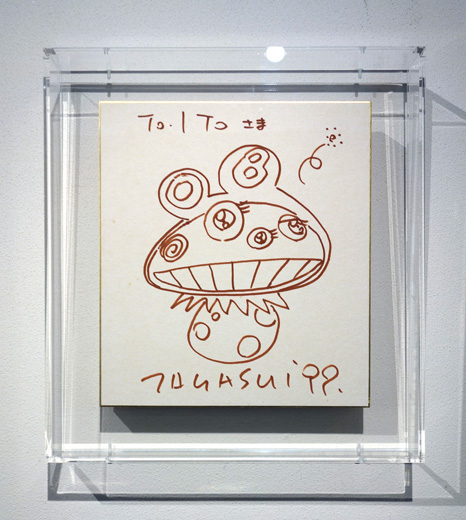 To. ITO さま
TAKASHI '99.